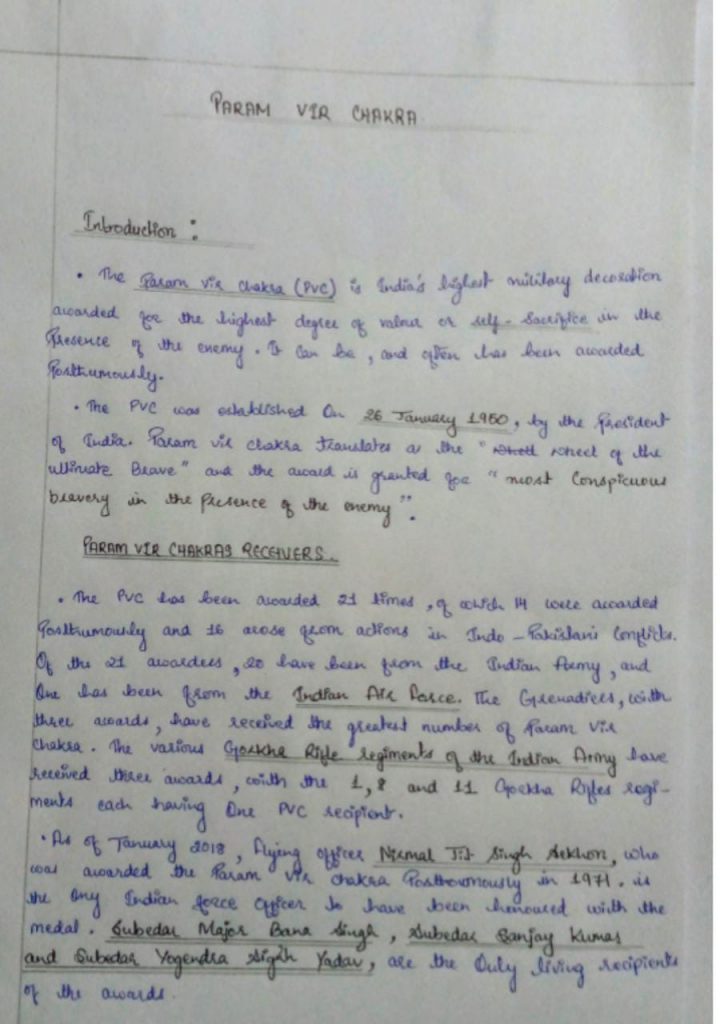 PARAM VIR CHAKRA
Introduction :
• The Param Vir Chakra (PVC) is India's highest military decoration
awarded for the highest degree of valour or self-Sacrifice in the
Presence of the enemy. It can be, and often has been awarded
Posthumously.
• The PVC was established On 26 January 1950, by the President
of India. Param vir chakra translates as the " wheel of the
ultimate Brave" and the award is granted for "most Conspicuous
bravery in the Presence of the enemy".
PARAM VIR CHAKRAS RECEIVERS.
• The PVC has been awarded 21 times, of which 14 were awarded
Posthumously and 16 arose from actions in Indo-Pakistani Conflicts.
Of the 21 awardees, 20 have been from the Indian Army, and
One has been from the Indian Air Force. The Grenadiers, with
three awards, have received the greatest number of Param Vir
Chakra. The various Gorkha Rifle regiments of the Indian Army have
received three awards, with the 1, 8 and 11 Gorkha Rifles regi-
ments each having One PVC recipient.
• As of January 2018, flying officer Nirmal Jit Singh Sekhon, who
was awarded the Param Vir Chakra Posthomously in 1971. is
the Ony Indian force officer to have been honoured with the
medal. Subedar Major Bana Singh, Subedar Sanjay Kumar
and Subedar Yogendra Sigh Yadav, are the Only living recipients
of the awards.